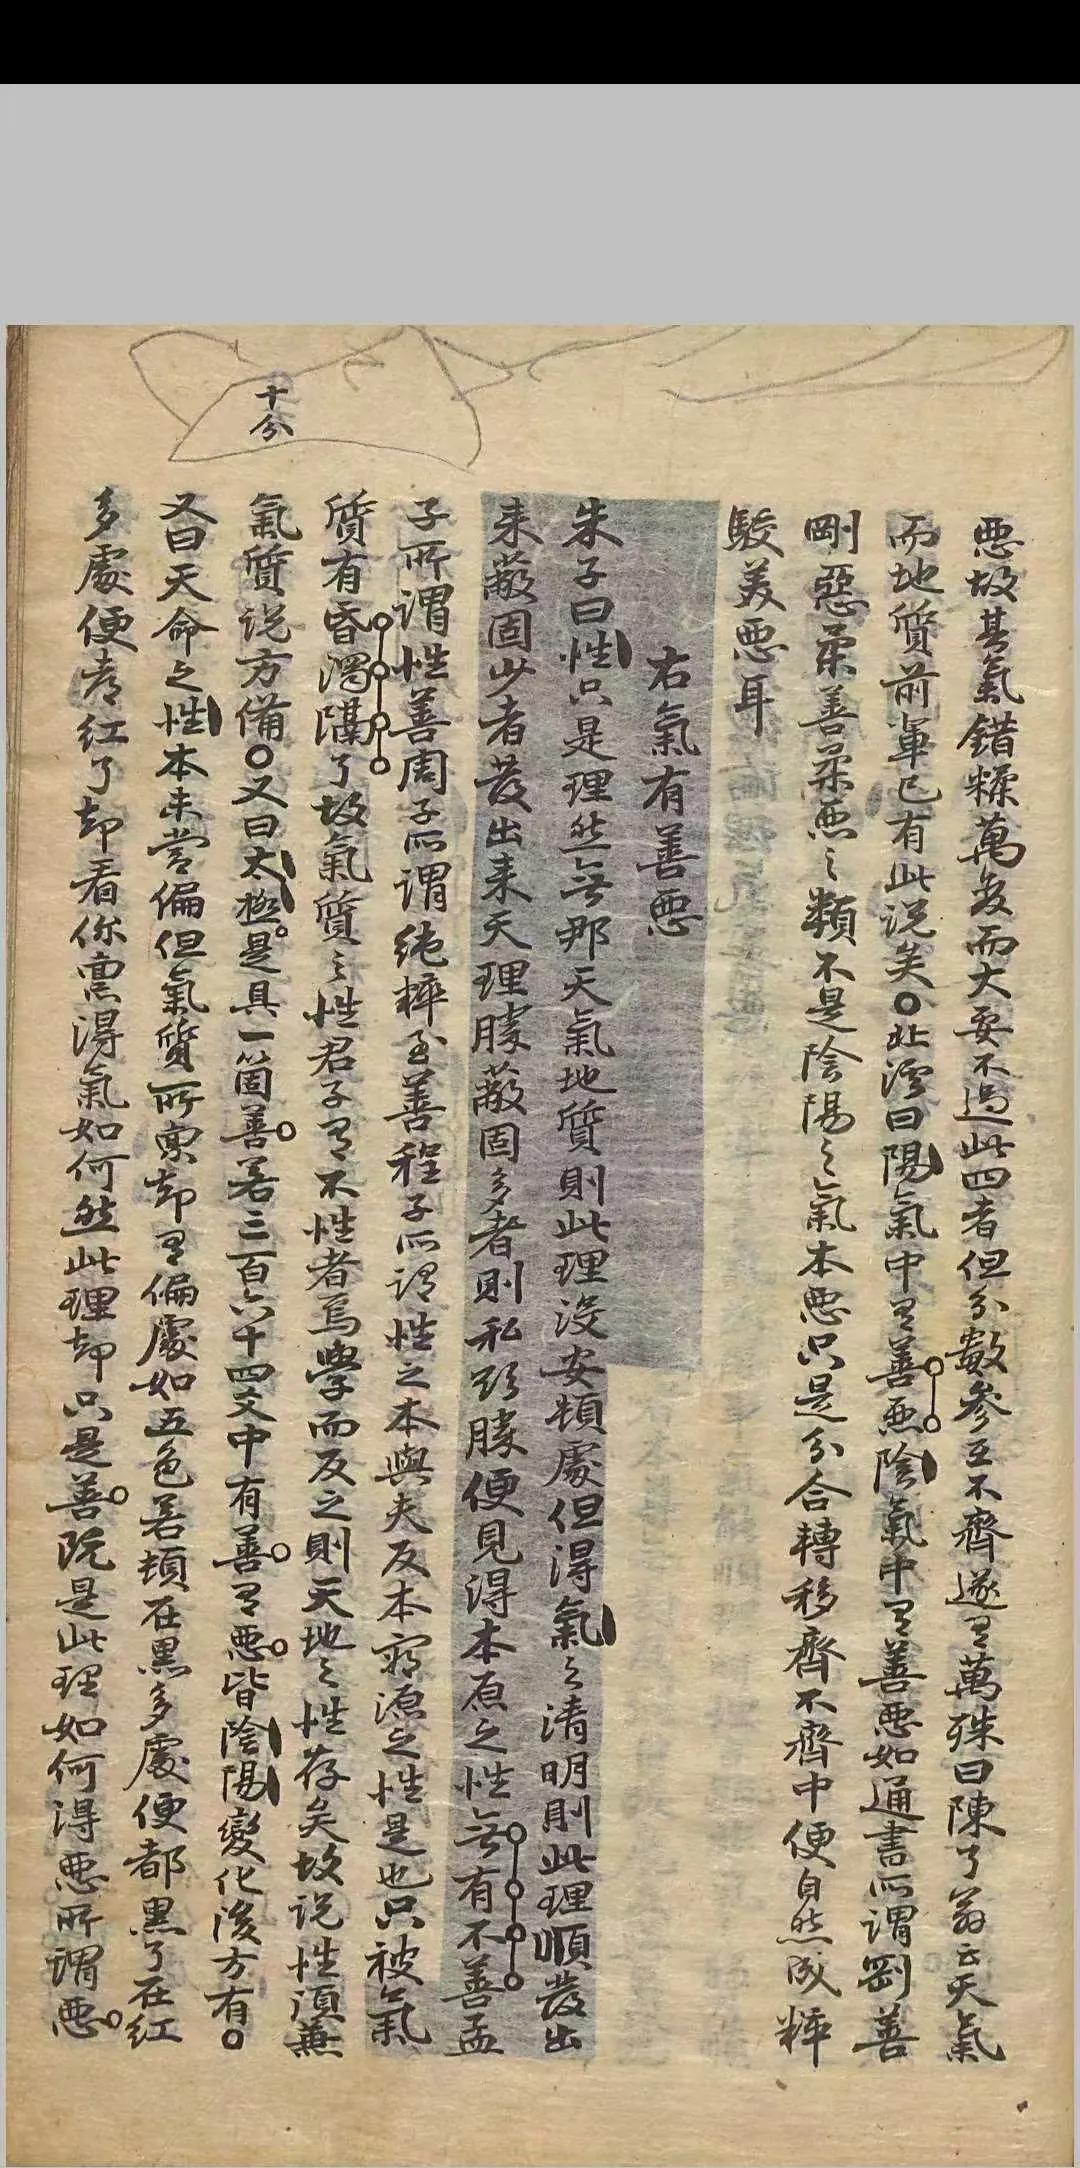 十分
惡故其氣錯糅萬変而大要不過此四者但分數參互不齊遂有萬殊曰陳了翁云天氣
而地質前輩已有此说矣○北溪曰陽氣中有善惡陰氣中有善惡如通書所謂剛善
剛惡柔善柔惡之類不是陰陽之氣本惡只是分合轉移齊不齊中便自然成粹
駁美惡耳
右氣有善惡
朱子曰性只是理然無那天氣地質則此理沒安頓處但得氣之清明則此理順發出
来蔽固少者發出来天理勝蔽固多者則私欲勝便見得本原之性無有不善孟
子所謂性善周子所謂純粹至善程子所謂性之本與夫反本窮源之性是也只被氣
質有昏濁隔了故氣質之性君子有不性者焉學而反之則天地之性存矣故说性須兼
氣質说方備○又曰太極是具一箇善若三百六十四爻中有善有惡皆陰陽變化後方有○
又曰天命之性本未嘗偏但氣質所稟却有偏處如五色若頓在黑多處便都黑了在紅
多處便都红了却看你稟得氣如何然此理却只是善既是此理如何得惡所謂惡